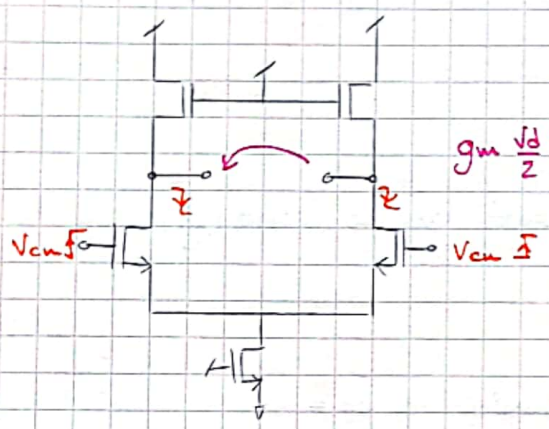 gm vd/2
Z Z
Vcm Vcm